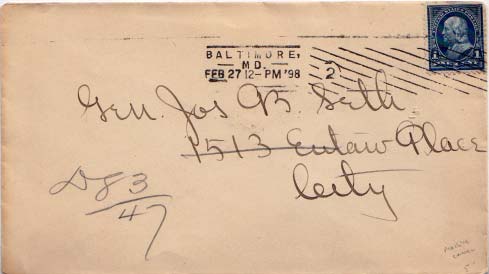 BALTIMORE,
MD.
FEB 27 12-PM '98
2
1 1
Gen. Jos B. Seth
1513 Eutaw Place
City
D83
47